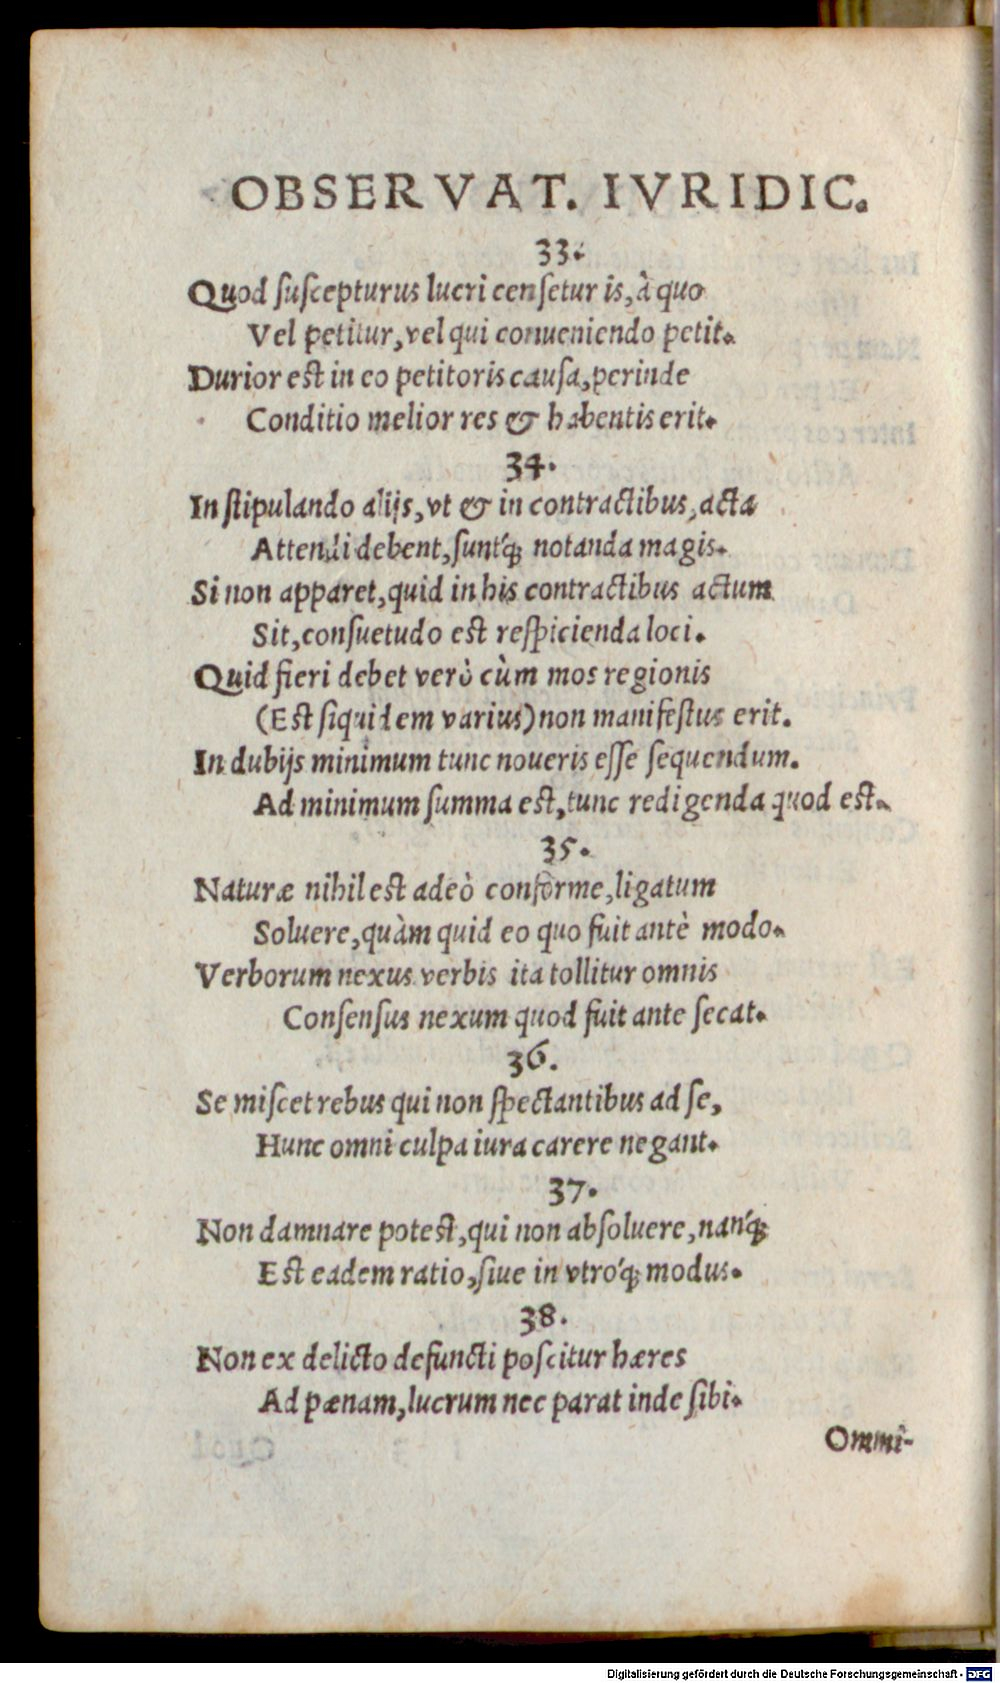 OBSERVAT. IVRIDIC.
33.
Quod suscepturus lucri censetur is, à quo
Vel petitur, vel qui conueniendo petit.
Durior est in eo petitoris causa, perinde
Conditio melior res & habentis erit.
34.
In stipulando alijs, vt & in contractibus, acta
Attendi debent, sunt'q; notanda magis.
Si non apparet, quid in his contractibus actum
Sit, consuetudo est respicienda loci.
Quid fieri debet verò cùm mos regionis
(Est siquidem varius) non manifestus erit.
In dubijs minimum tunc noueris esse sequendum.
Ad minimum summa est, tunc redigenda quod est.
35.
Naturæ nihil est adeò conforme, ligatum
Soluere, quàm quid eo quo fuit antè modo.
Verborum nexus verbis ita tollitur omnis
Consensus nexum quod fuit ante secat.
36.
Se miscet rebus qui non spectantibus ad se,
Hunc omni culpa iura carere negant.
37.
Non damnare potest, qui non absoluere, nan'q;
Est eadem ratio, siue in vtro'q; modus.
38.
Non ex delicto defuncti poscitur hæres
Ad pænam, lucrum nec parat inde sibi.
Ommi-
Digitalisierung gefördert durch die Deutsche Forschungsgemeinschaft - DFG